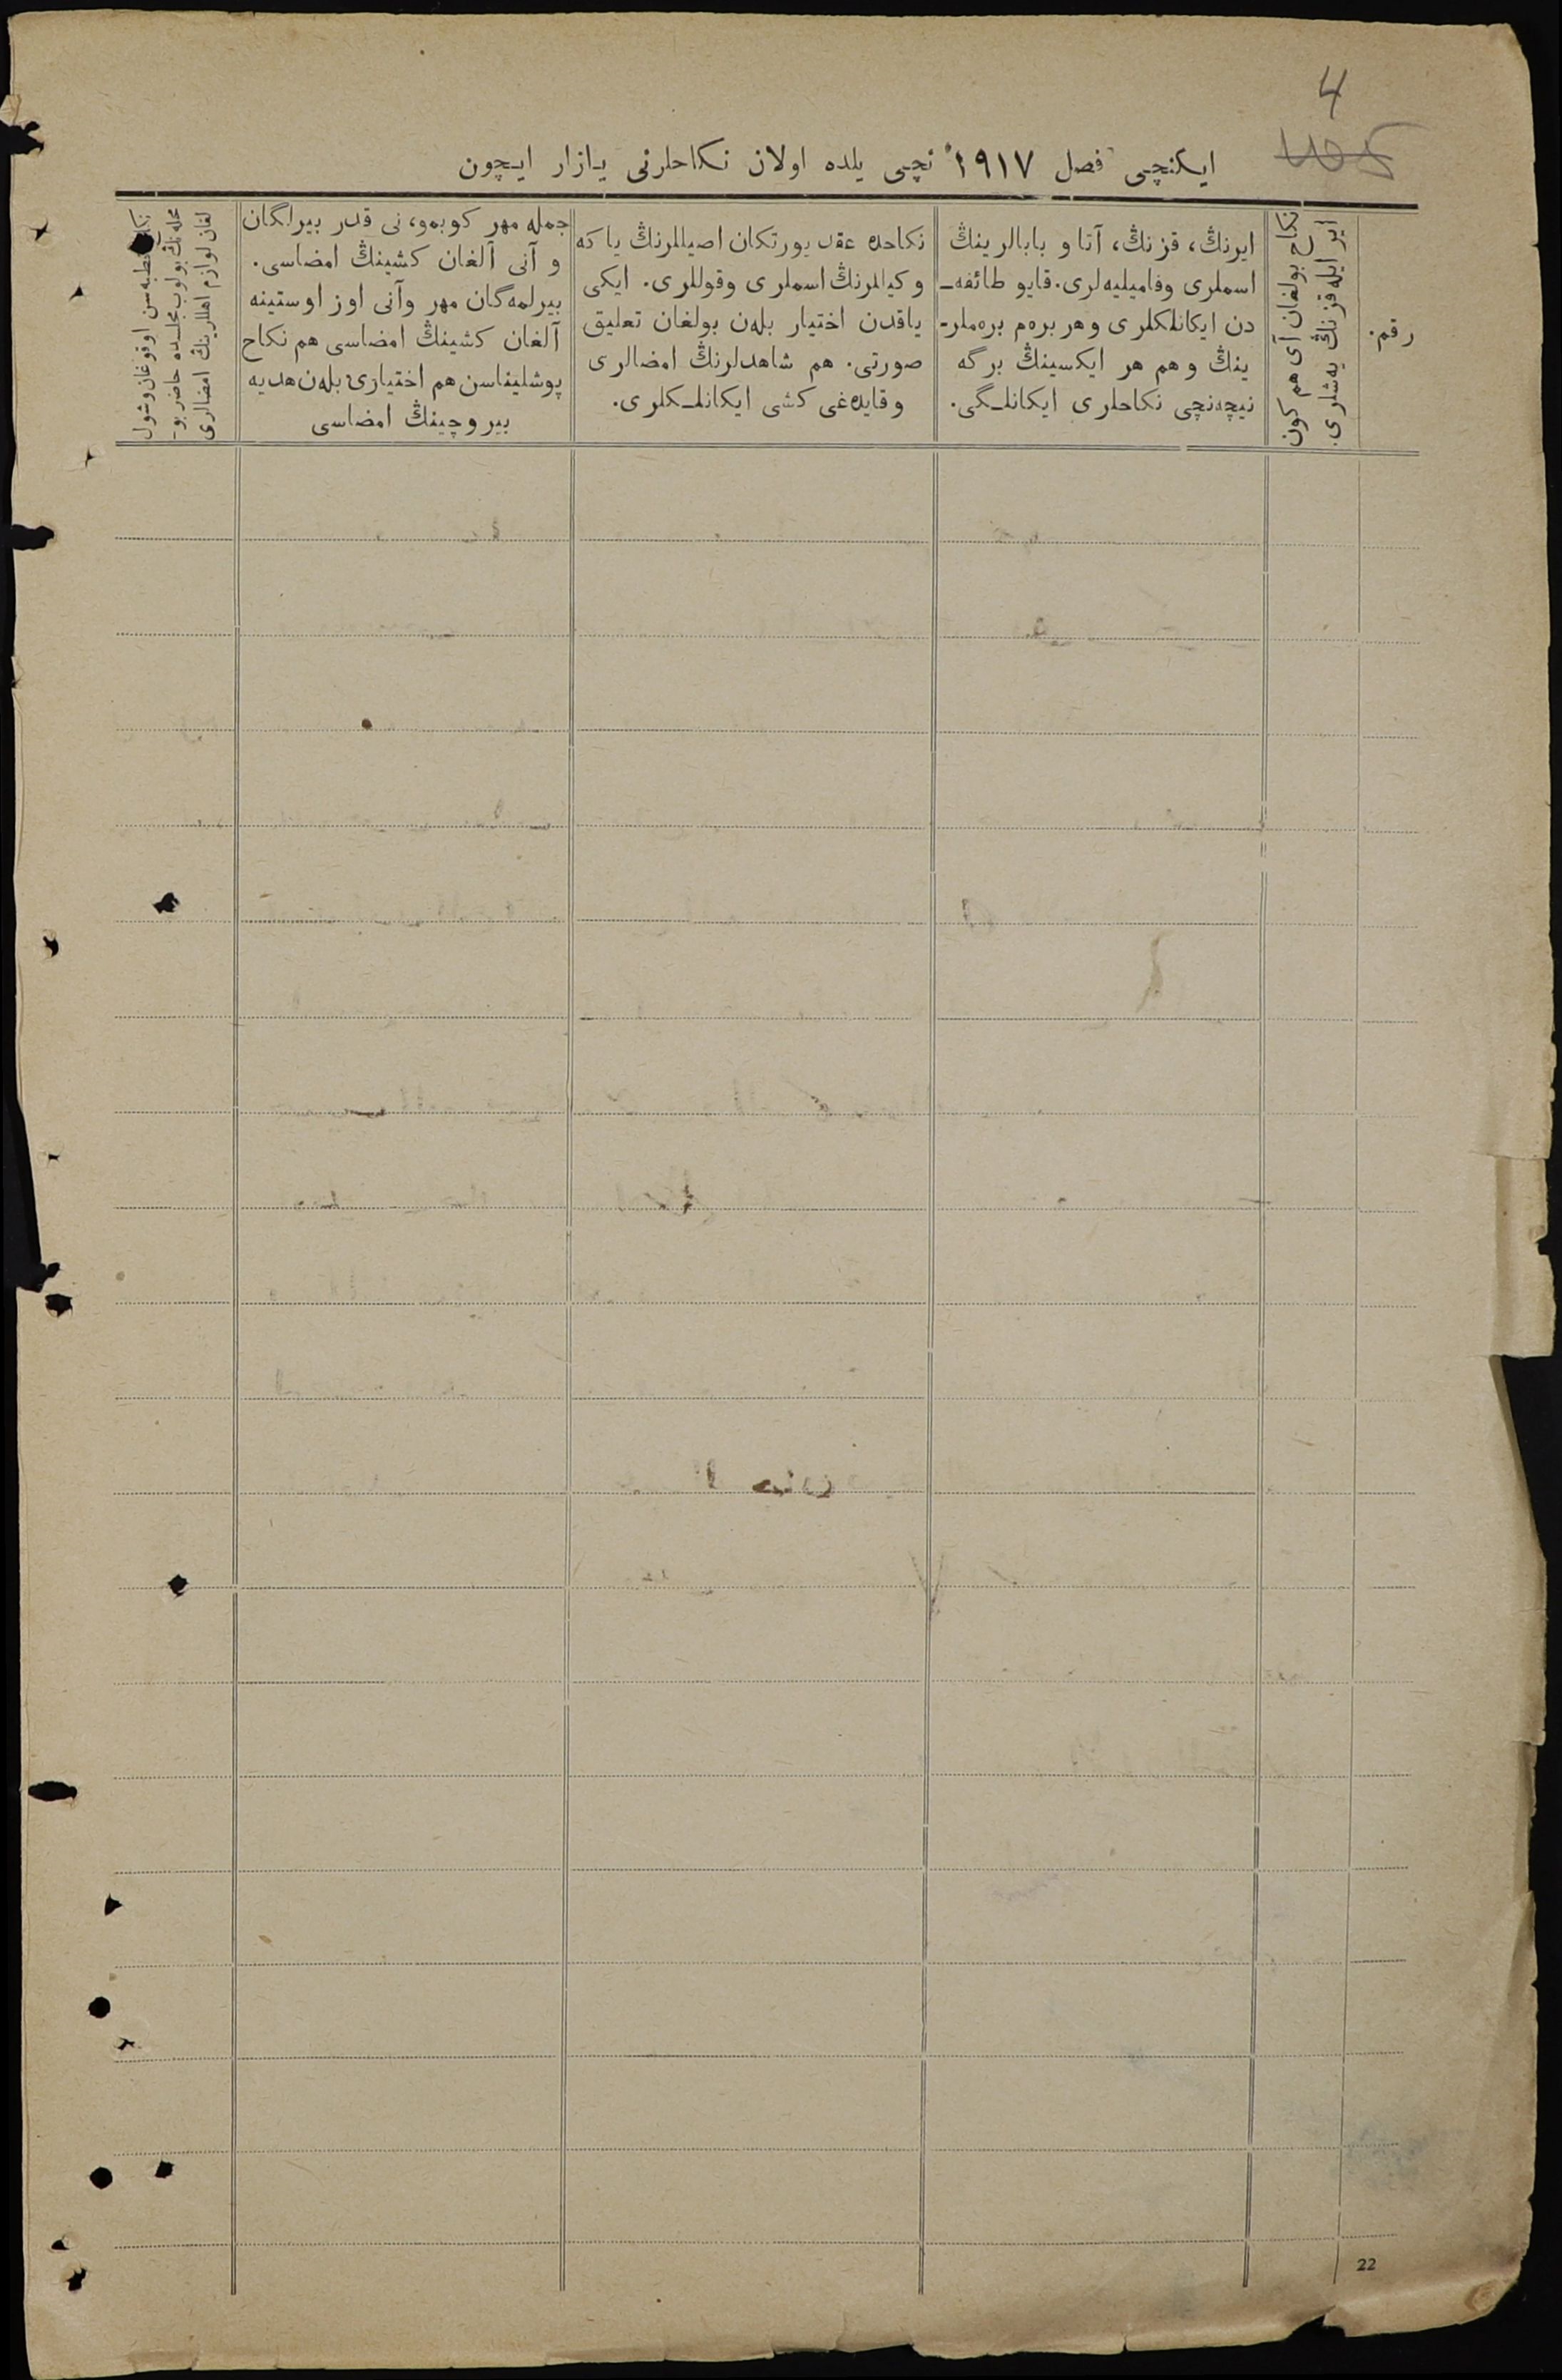 4
ایکنچی فصل ١٩١٧ نچی یلده اولان نکاحلرنی یازار ایچون
رقم.
ایر ایله قزنڭ یەشلری.
نکاح بولغان آی هم کون
ایرنڭ، قزنڭ، آتا و بابالرینڭ
اسملری وفامیلیەلری. قایو طائفه‌ـ
دن ایکانلکلری و هر بره‌م بره‌ملر-
ینڭ و هم هر ایکسینڭ برگه
نیچه‌نچی نکاحلری ایکانلـگی.
نکاحده عقد یورتکان اصیللرنڭ یا که
و کیللرنڭ اسملری وقوللری. ایکی
یاقدن اختیار بلەن بولغان تعلیق
صورتی. هم شاهدلرنڭ امضالری
وقایده‌غی کشی ایکانلـکلری.
جمله مهر کوبمو، نی قدر بیرلگان
و آنی آلغان کشینڭ امضاسی.
بیرلمه‌گان مهر وآنی اوز اوستینه
آلغان کشینڭ امضاسی هم نکاح
پوشلیناسن هم اختیاری بلەن هدیه
بیروچینڭ امضاسی
خطبه‌سن اوقوغان وشول
محله‌نڭ بولوب مجلسده حاضر بو-
لغان لوازم اهللرینڭ امضالری
22